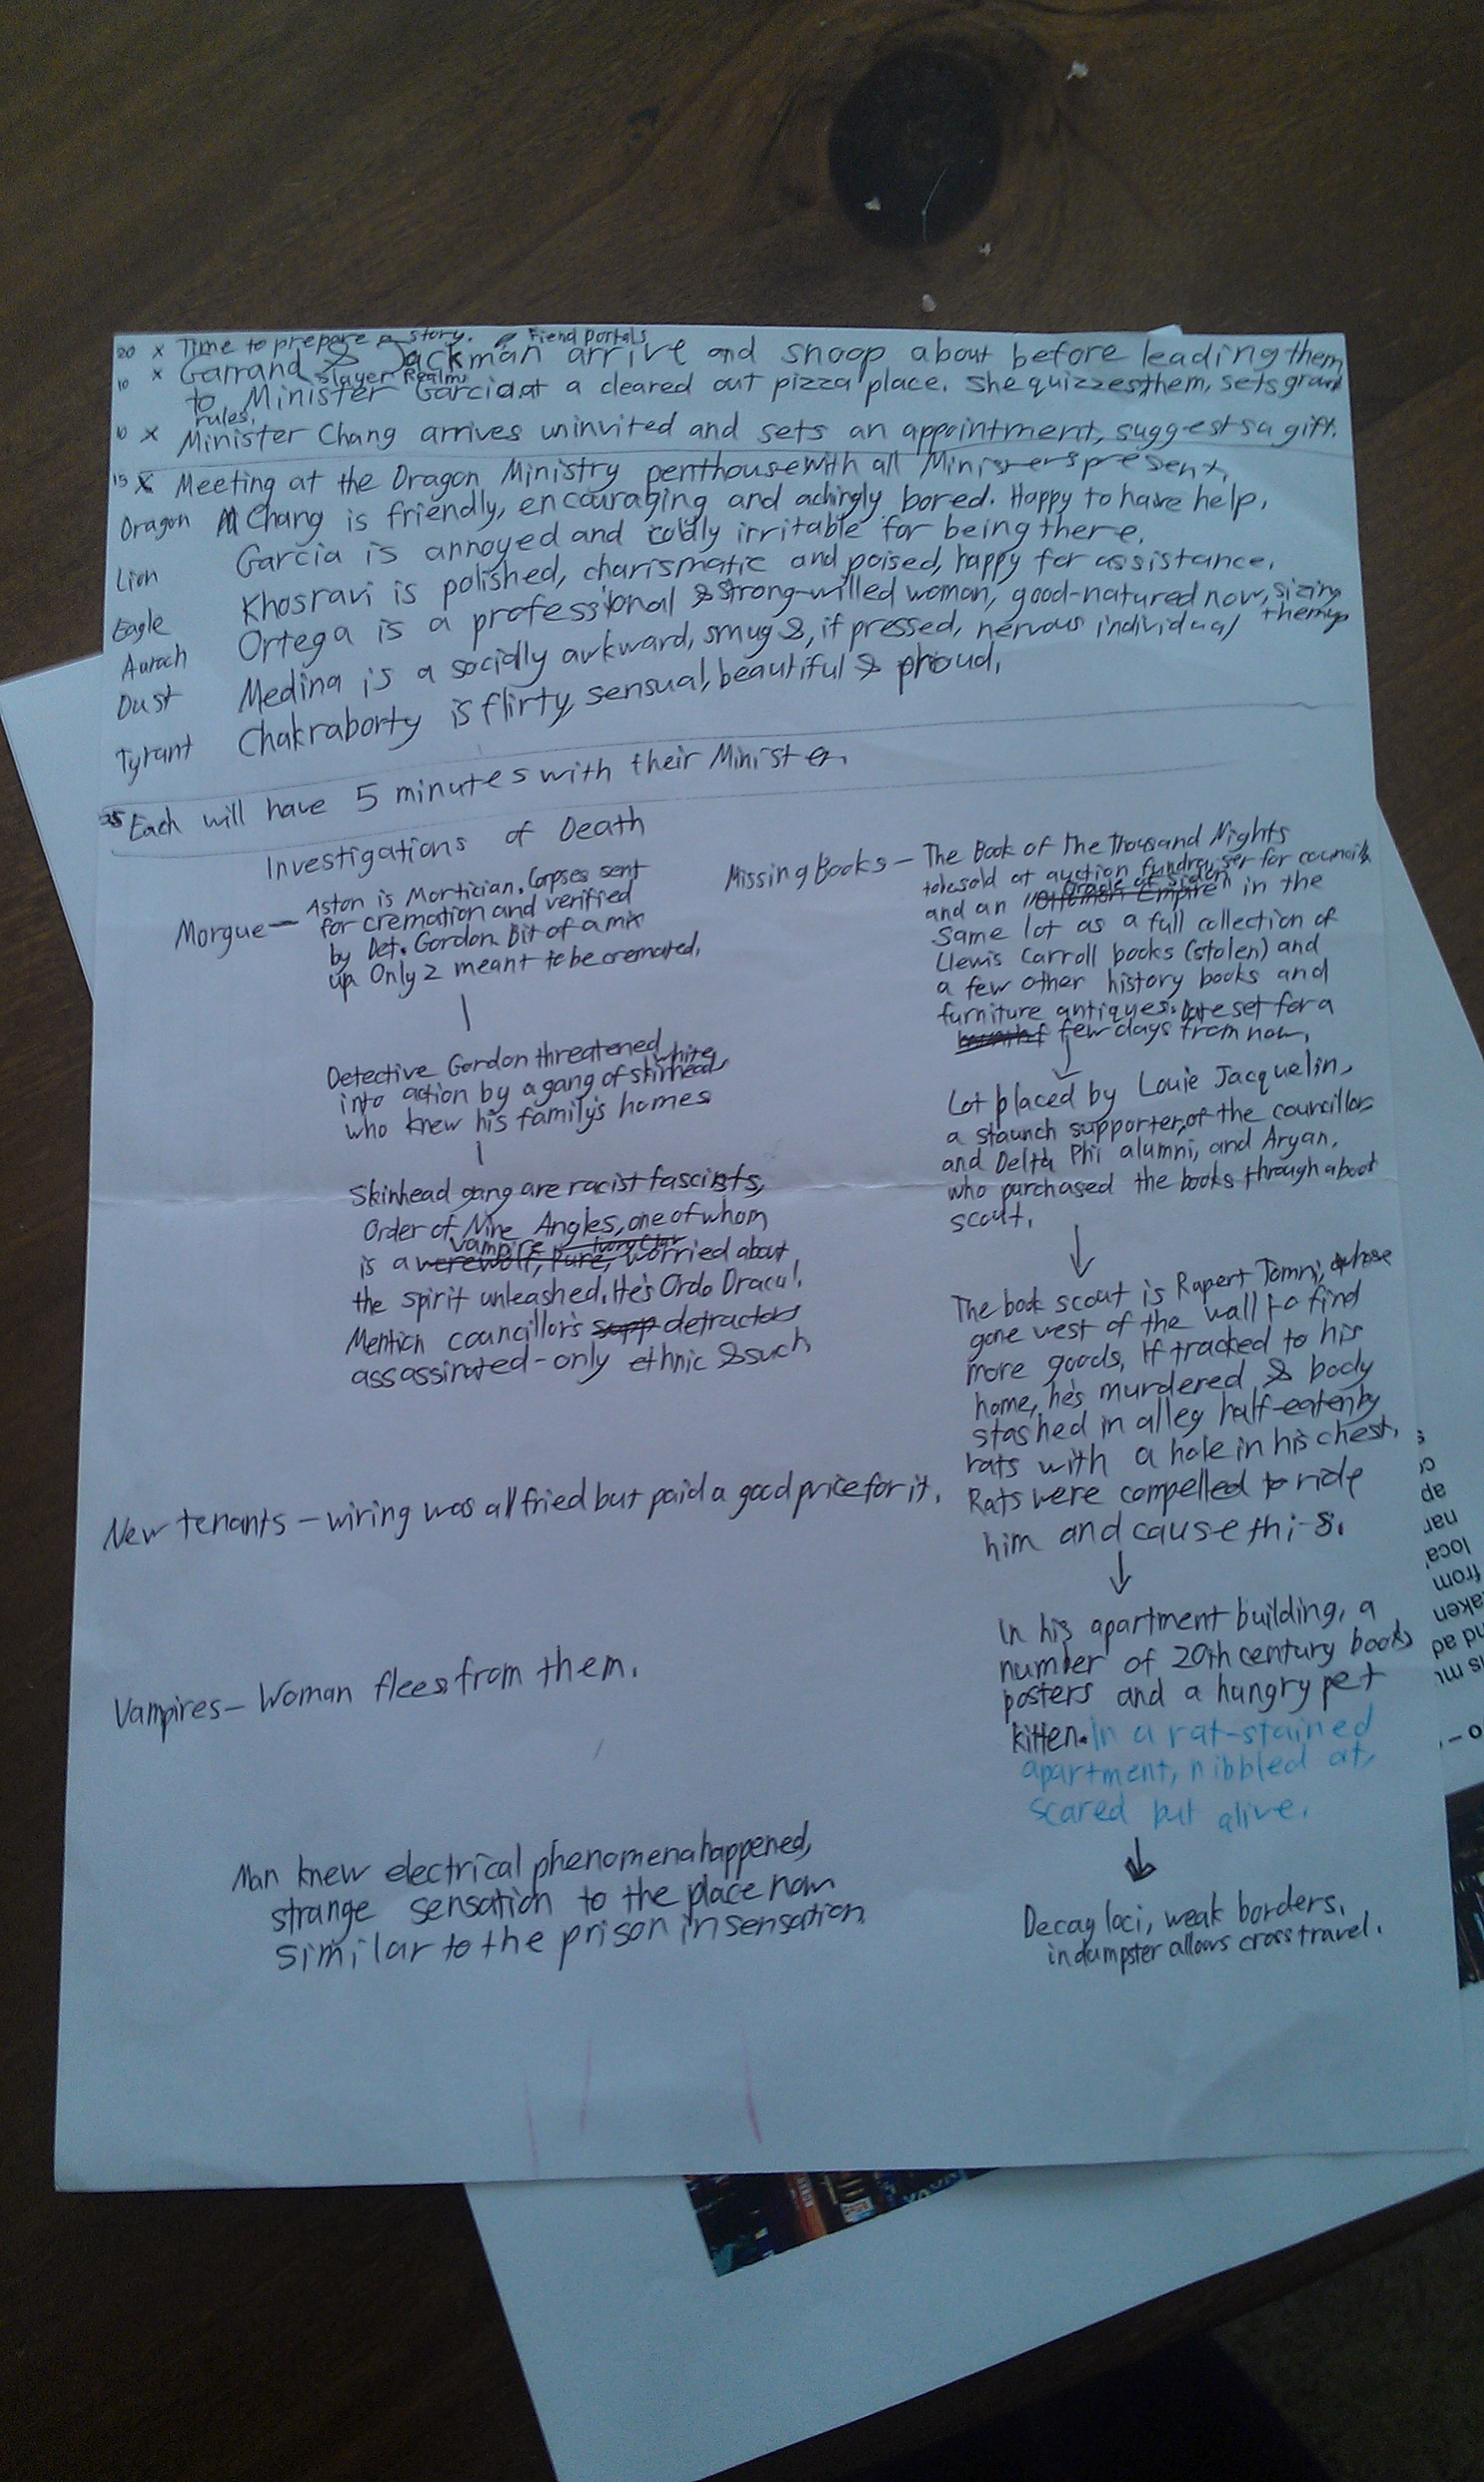 20 x Time to prepare a story. Fiend Portals
10 x Garrand & Jackman arrive and snoop about before leading them
Slayer Realms
to Minister Garcia at a cleared out pizza place. She quizzes them, sets ground
rules.
10 x Minister Chang arrives uninvited and sets an appointment, suggests a gift.
15 x Meeting at the Dragon Ministry penthouse with all Ministers present.
Dragon Chang is friendly, encouraging and achingly bored. Happy to have help.
Lion Garcia is annoyed and coldly irritable for being there.
Eagle Khosravi is polished, charismatic and poised, happy for assistance.
Auroch Ortega is a professional & strong-willed woman, good-natured now, sizing them up
Dust Medina is a socially awkward, smug &, if pressed, nervous individual
Tyrant Chakraborty is flirty, sensual, beautiful & proud.
Each will have 5 minutes with their Minister.
Investigations of Death
Morgue - Aston is Mortician. Corpses sent
for cremation and verified
by Det. Gordon. Bit of a mix
up. Only 2 meant to be cremated.
Detective Gordon threatened
into action by a gang of white skinheads
who knew his family's homes
Skinhead gang are racist fascists,
Order of Nine Angles, one of whom
vampire Ivory Claw
is a werewolf, Pure, worried about
the spirit unleashed. He's Ordo Dracul.
Mention councillor's supp detractors
assassinated - only ethnic & such
New tenants - wiring was all fried but paid a good price for it.
Vampires - Woman flees from them.
Man knew electrical phenomena happened,
strange sensation to the place now
similar to the prison in sensation
Missing Books - The Book of The Thousand Nights
to be sold at auction fundraiser for councillor
and an Ottoman Empire in the
same lot as a full collection of
Llewis Carroll books (stolen) and
a few other history books and
furniture antiques. Date set for a
few days from now.
Lot placed by Louie Jacquelin,
a staunch supporter of the councillor
and Delta Phi alumni, and Aryan,
who purchased the books through a book
scout.
The book scout is Rupert Tomni, whose
gone west of the wall to find
more goods. If tracked to his
home, he's murdered & body
stashed in alley half-eaten by
rats with a hole in his chest.
Rats were compelled to ride
him and cause this.
In his apartment building, a
number of 20th century books
posters and a hungry pet
kitten. In a rat-stained
apartment, nibbled at,
scared but alive.
Decay loci, weak borders.
in dumpster allows cross travel.
ap
nar
loca
from
aken
nd ad
is mu